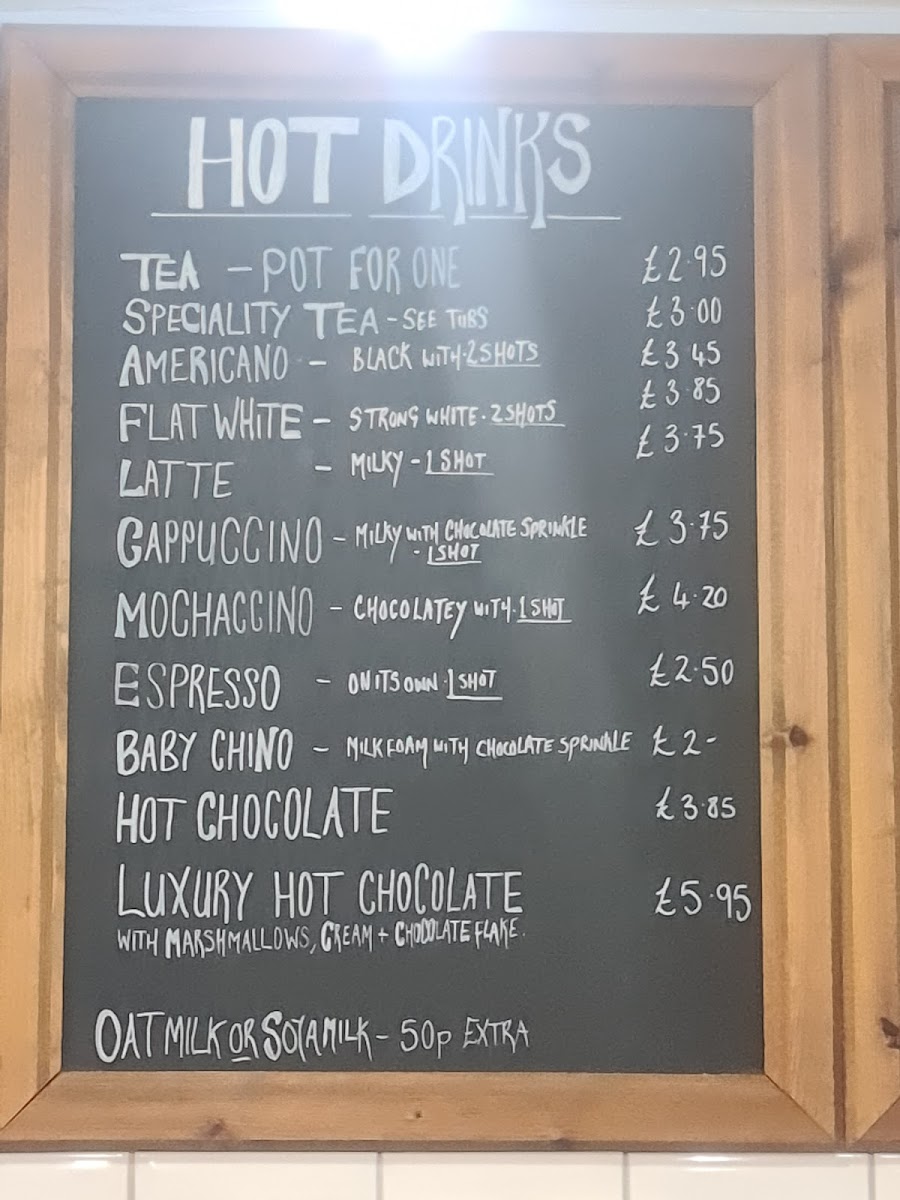 HOT DRINKS
TEA - POT FOR ONE £2.95
SPECIALITY TEA - SEE TUBS £3.00
AMERICANO - BLACK WITH 2 SHOTS £3.45
FLAT WHITE - STRONG WHITE. 2 SHOTS £3.85
LATTE - MILKY - 1 SHOT £3.75
CAPPUCCINO - MILKY WITH CHOCOLATE SPRINKLE £3.75
- 1 SHOT
MOCHACCINO - CHOCOLATEY WITH 1 SHOT £4.20
ESPRESSO - ON ITS OWN 1 SHOT £2.50
BABY CHINO - MILK FOAM WITH CHOCOLATE SPRINKLE £2-
HOT CHOCOLATE £3.85
LUXURY HOT CHOCOLATE £5.95
WITH MARSHMALLOWS, CREAM + CHOCOLATE FLAKE.
OAT MILK OR SOYA MILK - 50p EXTRA